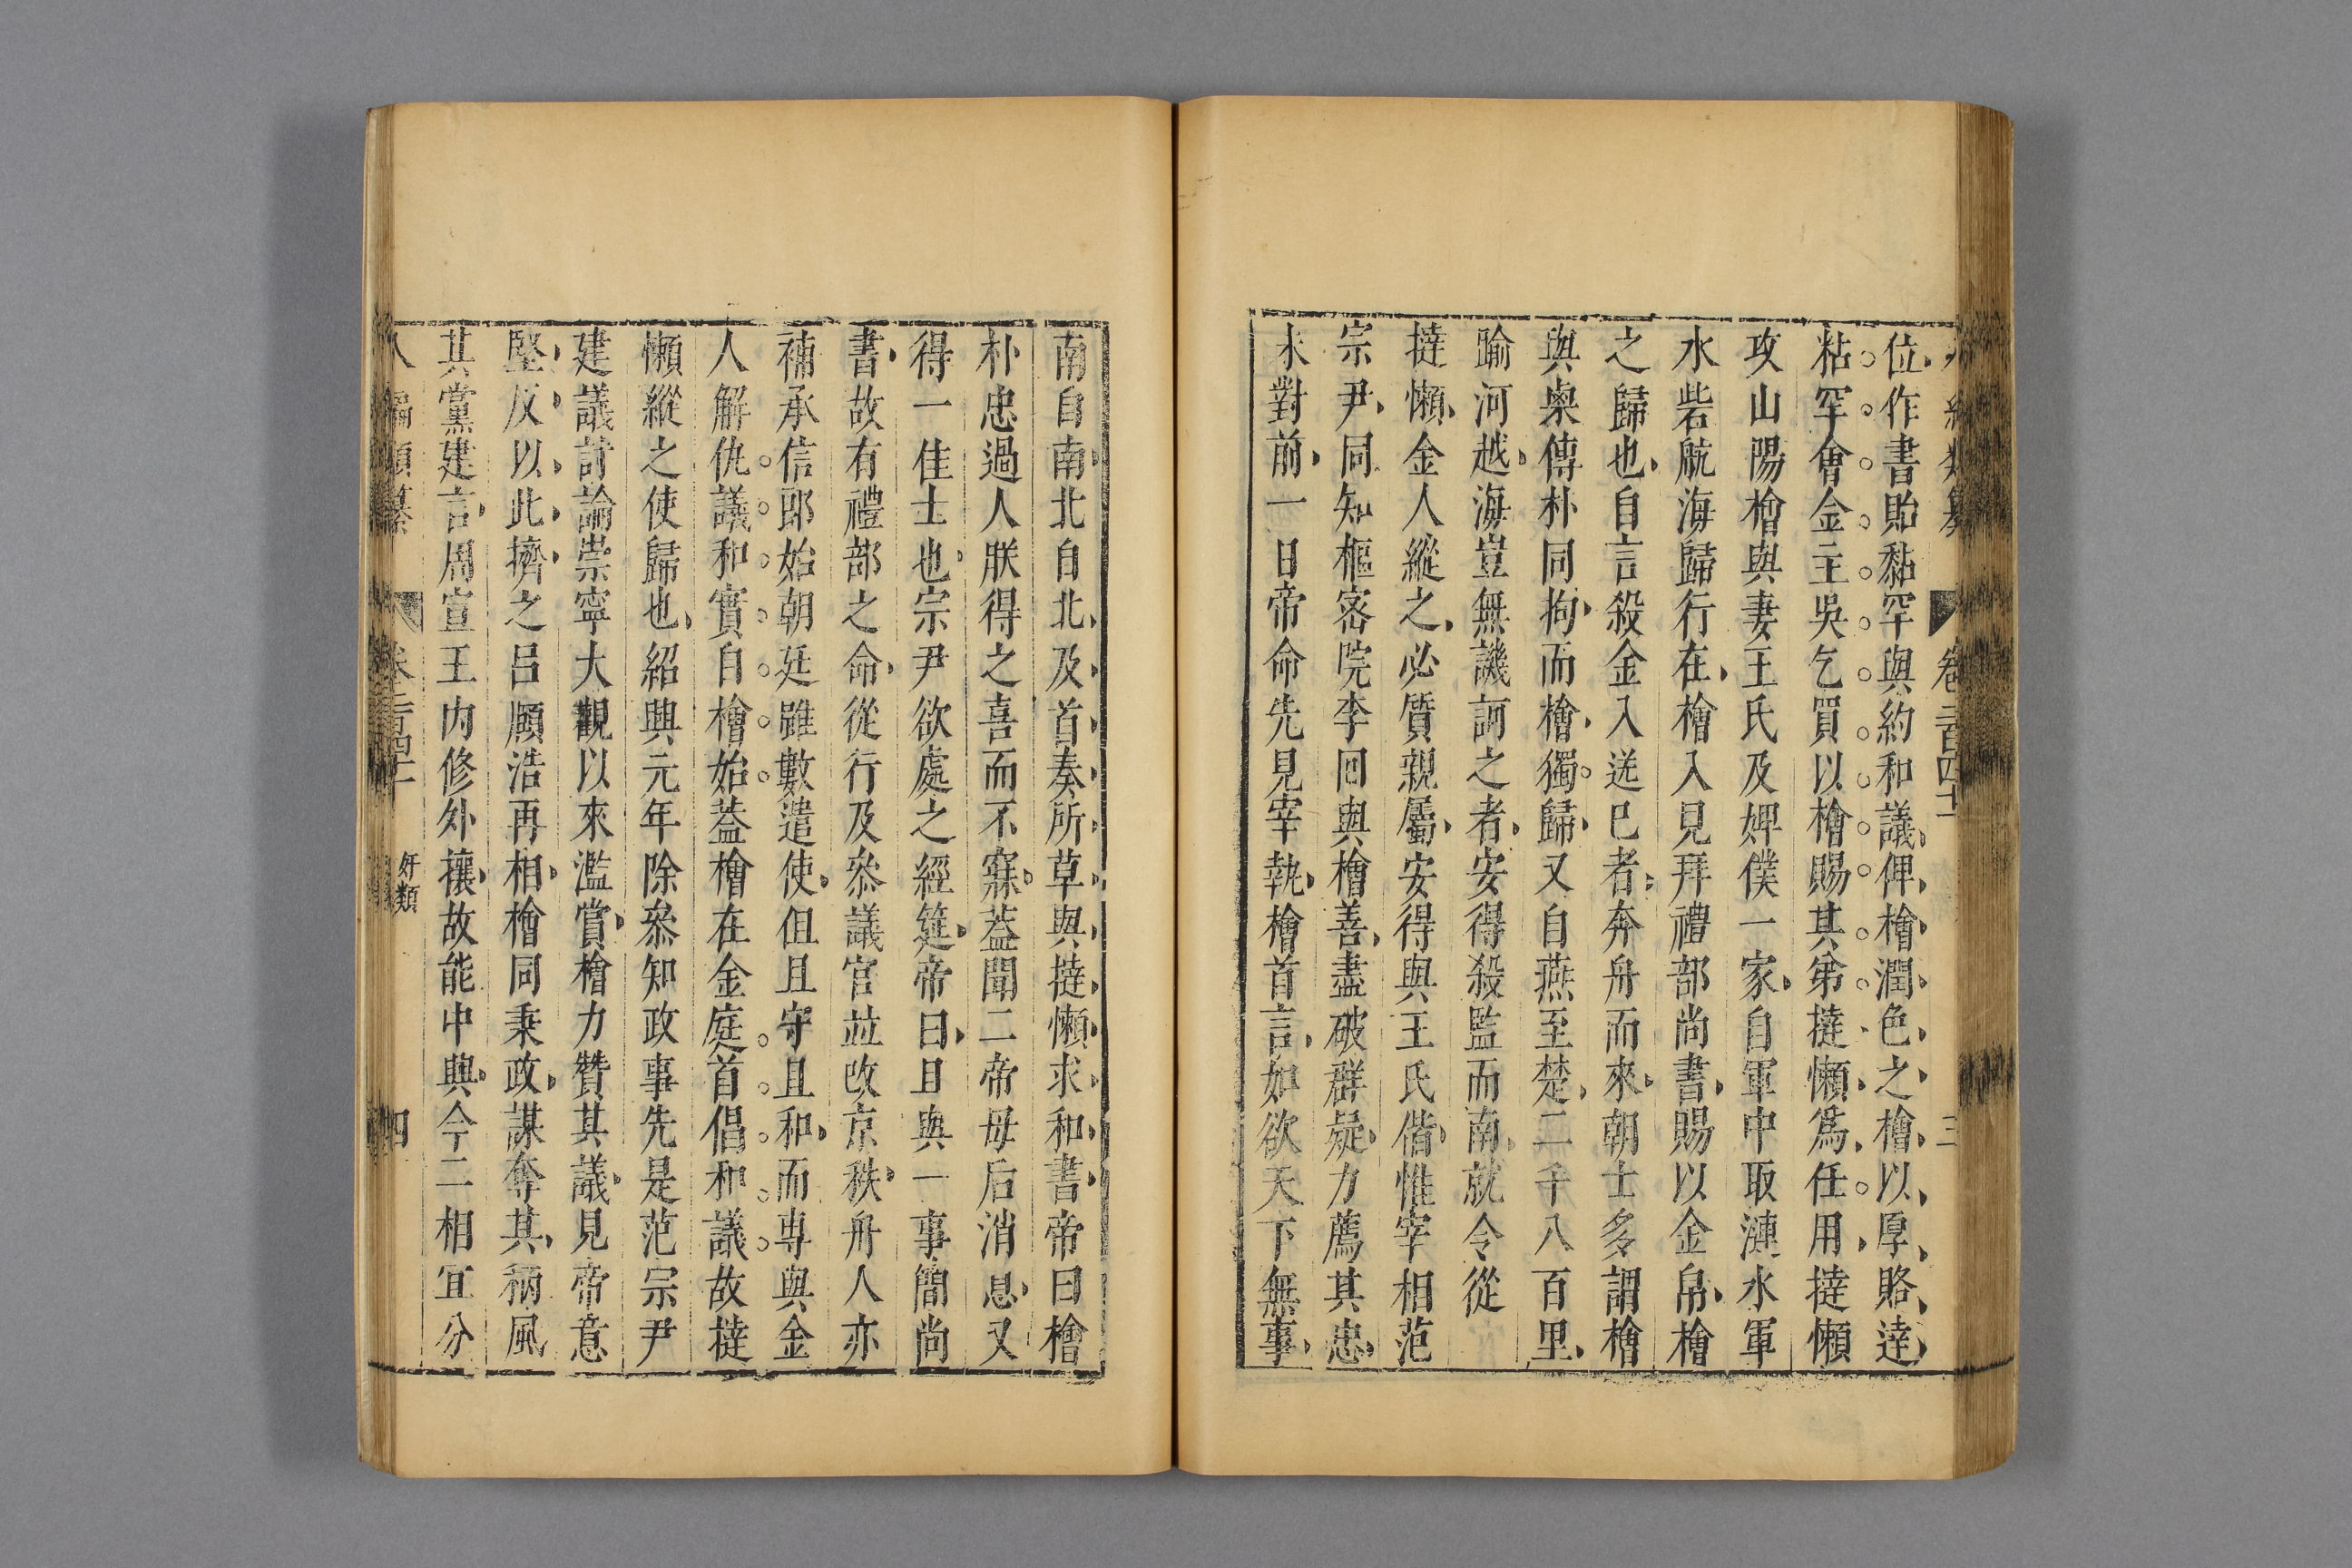 編類纂 卷二百四十 三
位作書貽黏罕與約和議俾檜潤色之檜以厚賂達
粘罕會金主吳乞買以檜賜其弟撻懶為任用撻懶
攻山陽檜與妻王氏及婢僕一家自軍中取漣水軍
水砦航海歸行在檜入見拜禮部尚書賜以金帛檜
之歸也自言殺金入送已者奔舟而來朝士多謂檜
與㮚傳朴同拘而檜獨歸又自燕至楚二千八百里
踰河越海豈無譏訶之者安得殺監而南就令從
撻懶金人縱之必質親屬安得與王氏偕惟宰相范
宗尹同知樞密院李回與檜善盡破群疑力薦其忠
未對前一日帝命先見宰執檜首言如欲天下無事
南自南北自北及首奏所草與撻懶求和書帝曰檜
朴忠過人朕得之喜而不寐蓋聞二帝母后消息又
得一佳士也宗尹欲處之經筵帝曰且與一事簡尚
書故有禮部之命從行及叅議官並改京秩舟人亦
補承信郎始朝廷雖數遣使但且守且和而專與金
人解仇議和實自檜始蓋檜在金庭首倡和議故撻
懶縱之使歸也紹興元年除叅知政事先是范宗尹
建議討論崇寧大觀以來濫賞檜力贊其議見帝意
堅反以此擠之呂頤浩再相檜同秉政謀奪其柄風
其黨建言周宣王內修外攘故能中興今二相宜分
八編類纂 卷二百四十 奸類 四